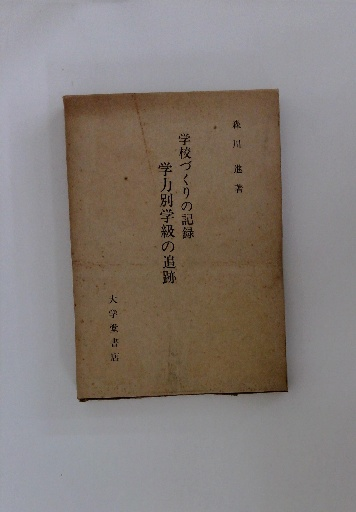 森川進著
学校づくりの記録
学力別学級の追跡
大学堂書店